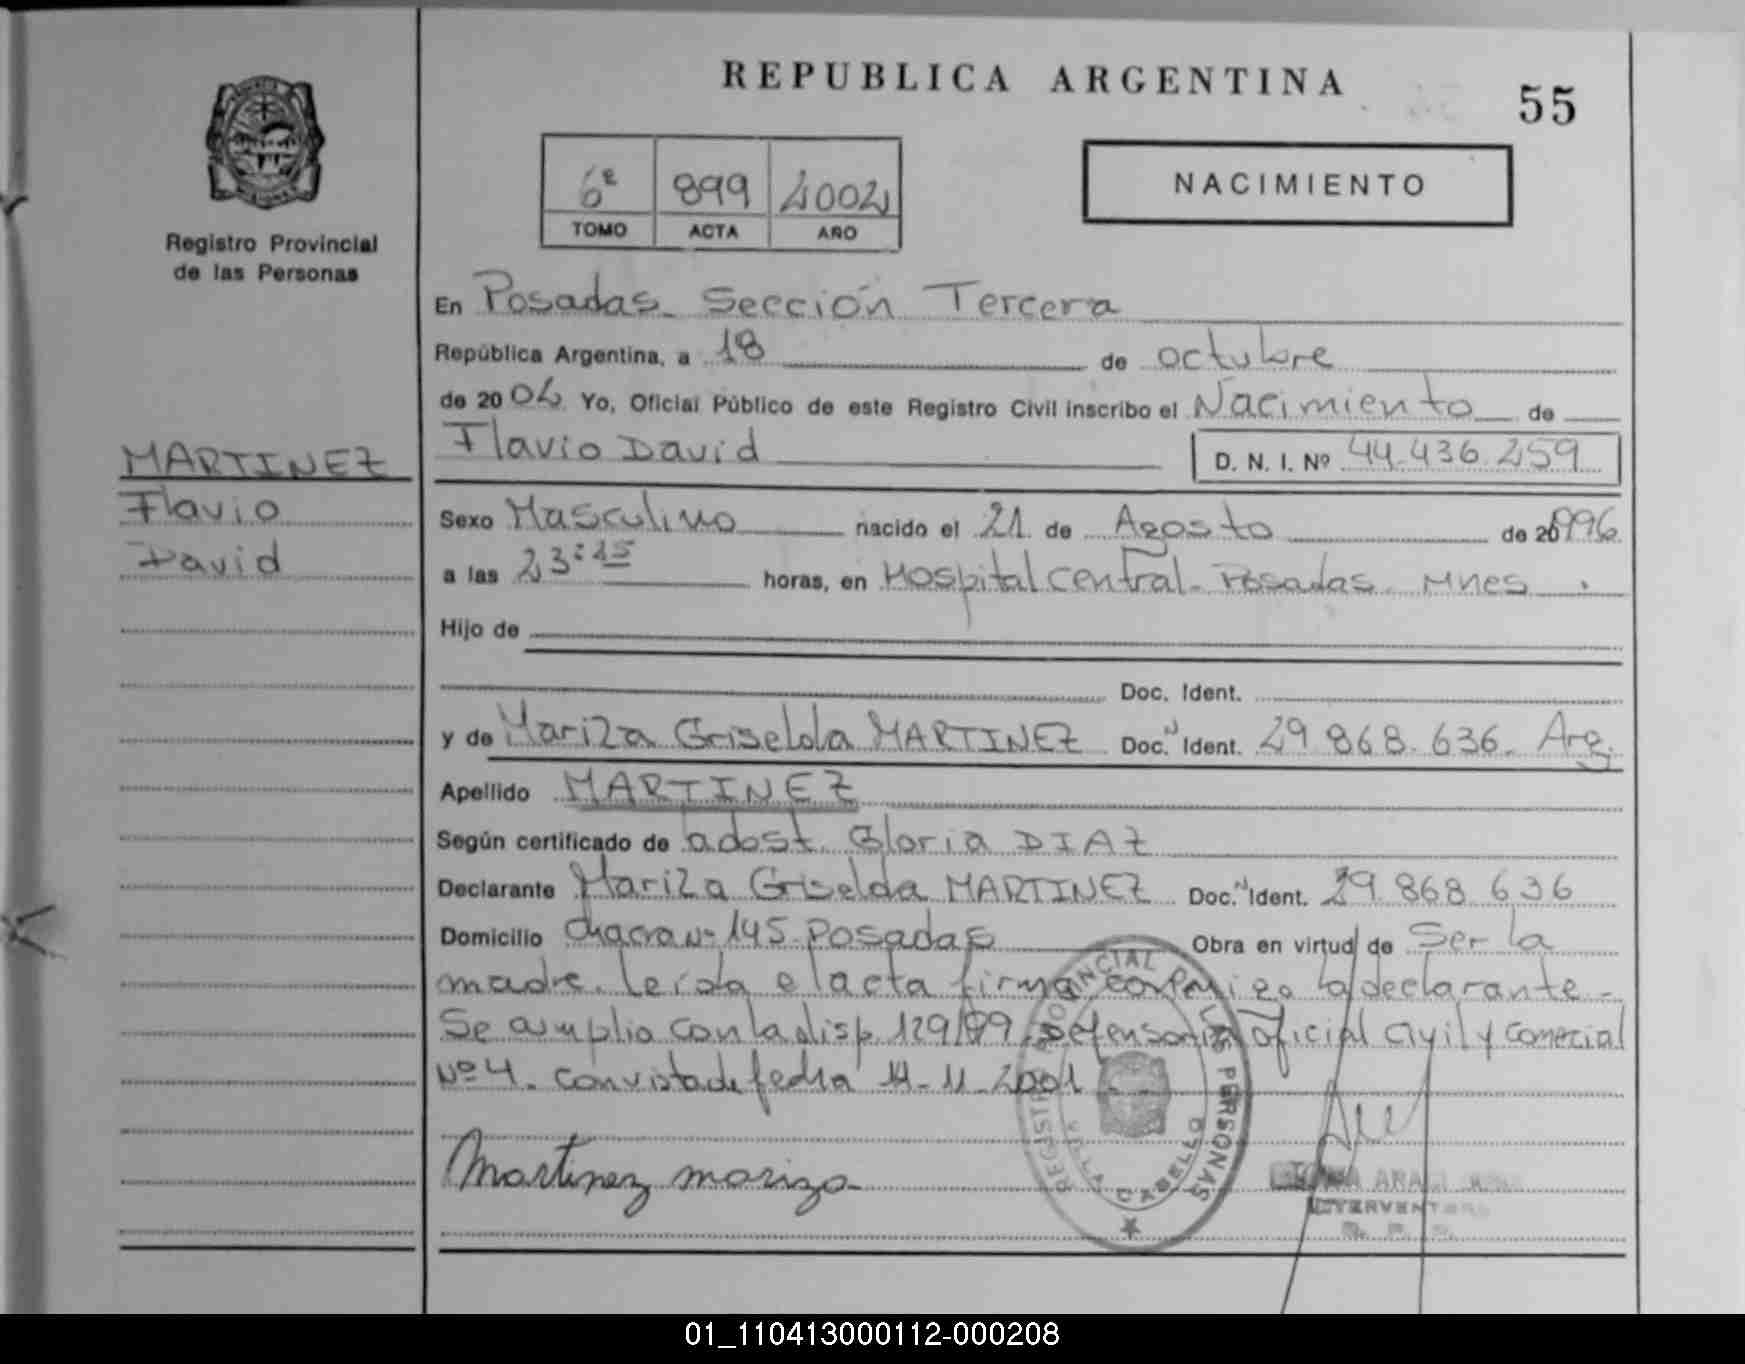 REPUBLICA ARGENTINA
55
6º 899 2002
TOMO ACTA AÑO
NACIMIENTO
Registro Provincial
de las Personas
En Posadas Sección Tercera
República Argentina, a 18 de octubre
de 2002 Yo, Oficial Público de este Registro Civil inscribo el Nacimiento de
Flavio David D. N. I. Nº 44.436.259
MARTINEZ
Flavio
David
Sexo Masculino nacido el 21 de Agosto de 1996
a las 23:15 horas, en Hospital Central - Posadas. Mnes.
Hijo de
Doc. Ident.
y de Mariza Griselda MARTINEZ Doc. Ident. 29.868.636. Arg.
Apellido MARTINEZ
Según certificado de obst. Gloria DIAZ
Declarante Mariza Griselda MARTINEZ Doc. Ident. 29.868.636
Domicilio chacra Nº 145 Posadas Obra en virtud de Ser la
madre. leída el acta firma conmigo la declarante -
Se amplia con la disp. 129/99. Defensoria oficial civil y comercial
Nº 4. con vista de fecha 14-11-2001
Martinez mariza
REGISTRO PROVINCIAL DE LAS PERSONAS
VILLA CABELLO
INTERVENTORA
01_110413000112-000208